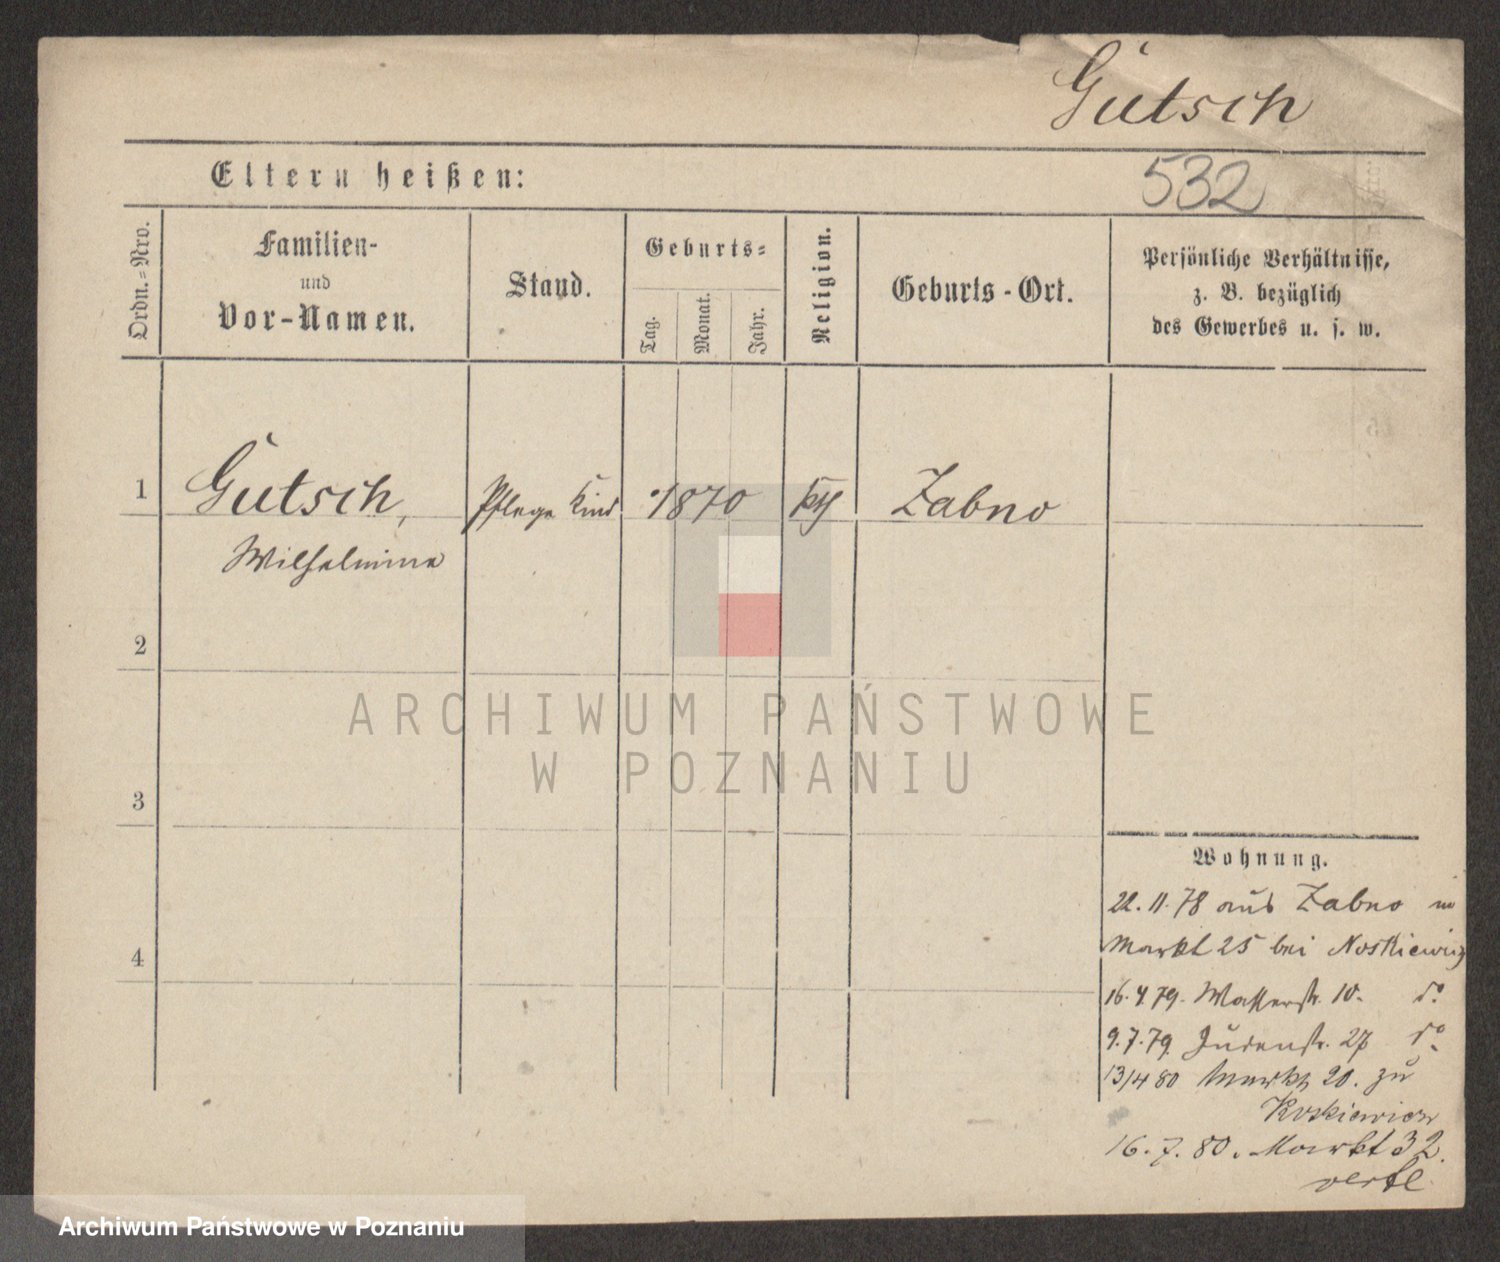 Gutsch
532
Eltern heißen:
Ordn.=Nro.
Familien-
und
Vor-Namen.
Stand.
Geburts=
Tag.
Monat.
Jahr.
Religion.
Geburts-Ort.
Persönliche Verhältnisse,
z. B. bezüglich
des Gewerbes u. s. w.
1
Gutsch,
Pflege Kind
1870
Zabno
Wilhelmine
2
3
4
ARCHIWUM PAŃSTWOWE
W POZNANIU
Wohnung.
22.11.78 aus Zabno in
Markt 25 bei Noskiewicz
16.4.79. Wasserstr. 10. do
9.7.79. Judenstr. 27 do
13/4 80 Markt 20. zu
Koskiewicz
16.7.80. Markt 32.
Archiwum Państwowe w Poznaniu